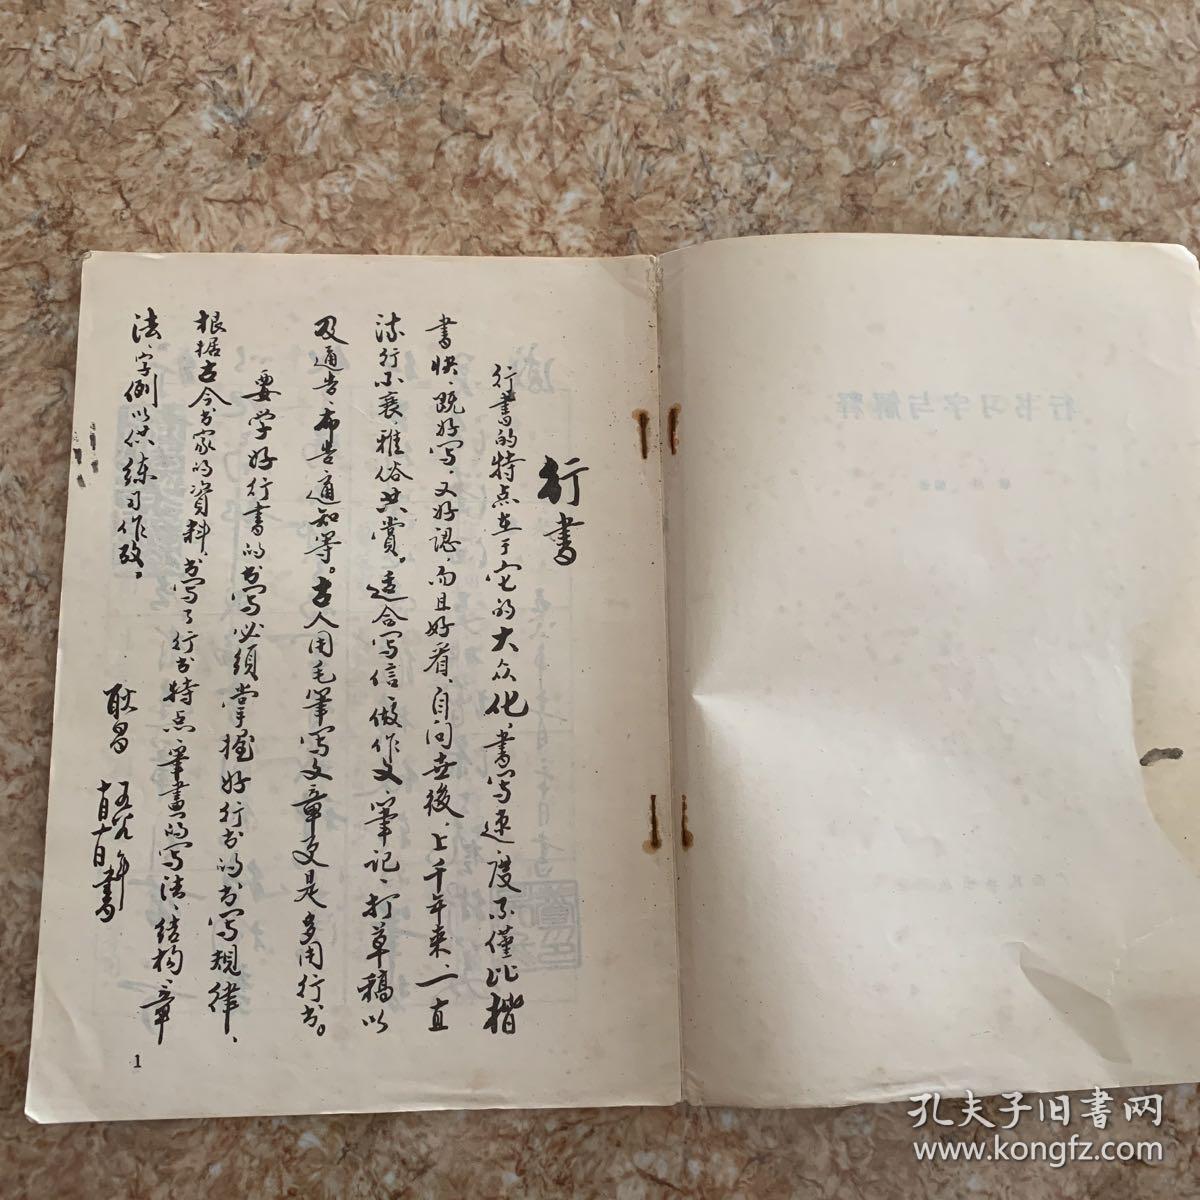 行書
行書的特点在于它的大众化，書写速度不僅比楷
書快，既好写，又好認，而且好看，自问世後，上千年来，一直
流行不衰，雅俗共赏。适合写信，做作文，筆记，打草稿以
及通告，布告，通知等。古人用毛筆写文章更是多用行书。
要学好行書的书写必须掌握好行书的书写規律，
根据古今书家的資料，书写了行书特点，筆畫的写法，结构，章
法，字例，以供练习作
耿昌
十月十日書
1
行书习字与解释
孔夫子旧書网
www.kongfz.com